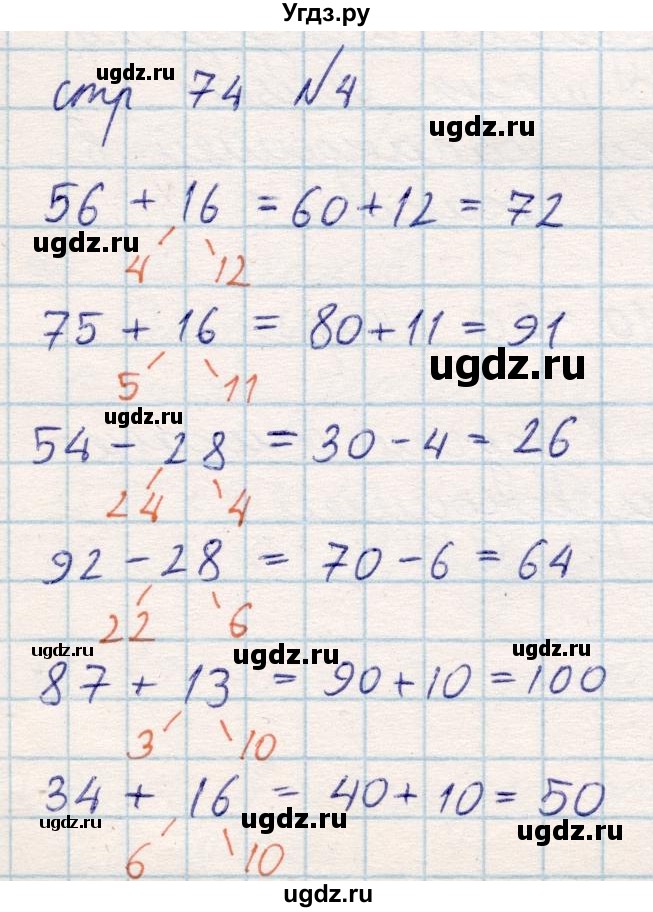 Угдз.ру
ugdz.ru
стр 74 №4
ugdz.ru
56 + 16 = 60 + 12 = 72
ugdz.ru
4 12
75 + 16 = 80 + 11 = 91
ugdz.ru
5 11
ugdz.ru
54 - 28 = 30 - 4 = 26
24 4
92 - 28 = 70 - 6 = 64
22 6
ugdz.ru ugdz.ru ugdz.ru
87 + 13 = 90 + 10 = 100
3 10
34 + 16 = 40 + 10 = 50
ugdz.ru ugdz.ru ugdz.ru
6 10
ugdz.ru